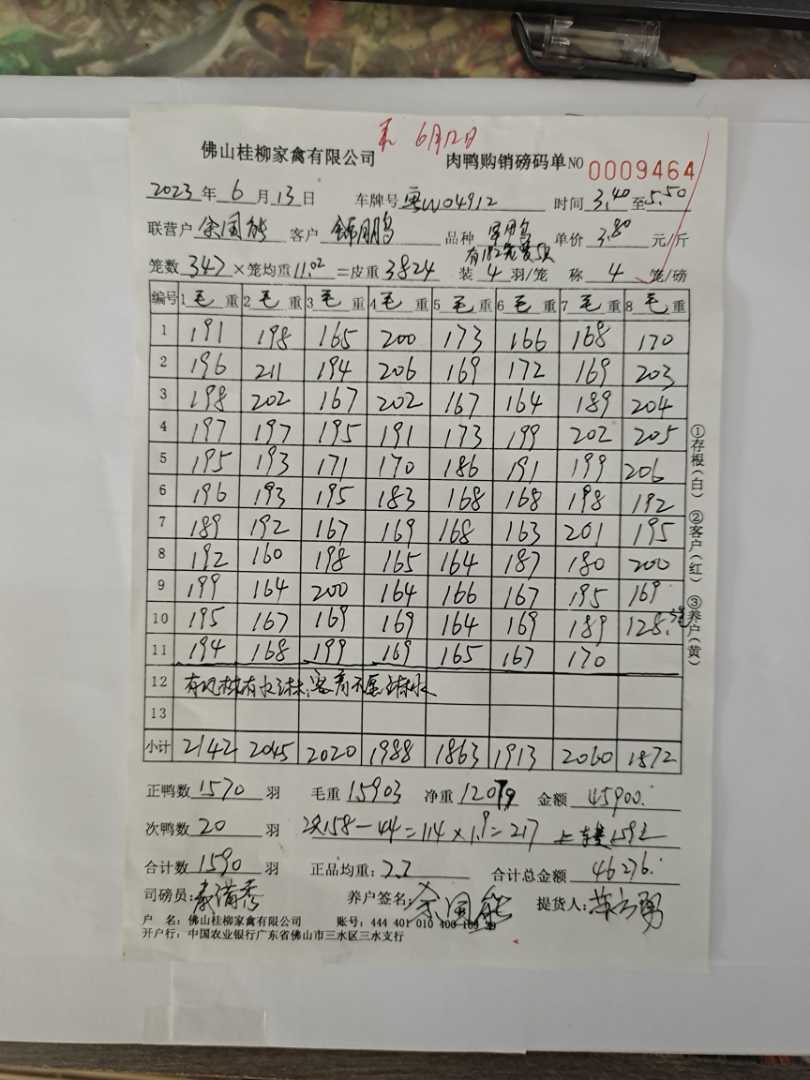 6月12日
佛山桂柳家禽有限公司 肉鸭购销磅码单 NO 0009464
2023年6月13日 车牌号 粤W04912 时间 3.40至5.50
联营户 余国能 客户 品种 单价 3.80 元/斤
笼数 347×笼均重 11.02=皮重 3824 装 4 羽/笼 称 4 笼/磅
编号 1 毛 重 2 毛 重 3 毛 重 4 毛 重 5 毛 重 6 毛 重 7 毛 重 8 毛 重
1 191 198 165 200 173 166 168 170
2 196 211 194 206 169 172 169 203
3 198 202 167 202 167 164 189 204
4 197 197 195 191 173 199 202 205
5 195 193 171 170 186 191 199 206
6 196 193 195 183 168 168 198 192
7 189 192 167 169 168 163 201 195
8 192 160 198 165 164 187 180 200
9 199 164 200 164 166 167 195 169
10 195 167 169 169 164 169 189 128.
11 194 168 199 169 165 167 170
12
13
小计 2142 2045 2020 1988 1863 1913 2060 1872
①存根(白) ②客户(红) ③养户(黄)
正鸭数 1570 羽 毛重 15903 净重 12079 金额 45900.
次鸭数 20 羽 158-44=114×1.9=217
合计数 1590 羽 正品均重: 合计总金额 46276.
司磅员: 秦满秀 养户签名: 余国能 提货人:
户 名: 佛山桂柳家禽有限公司 账号: 444 401 010 400
开户行: 中国农业银行广东省佛山市三水区三水支行